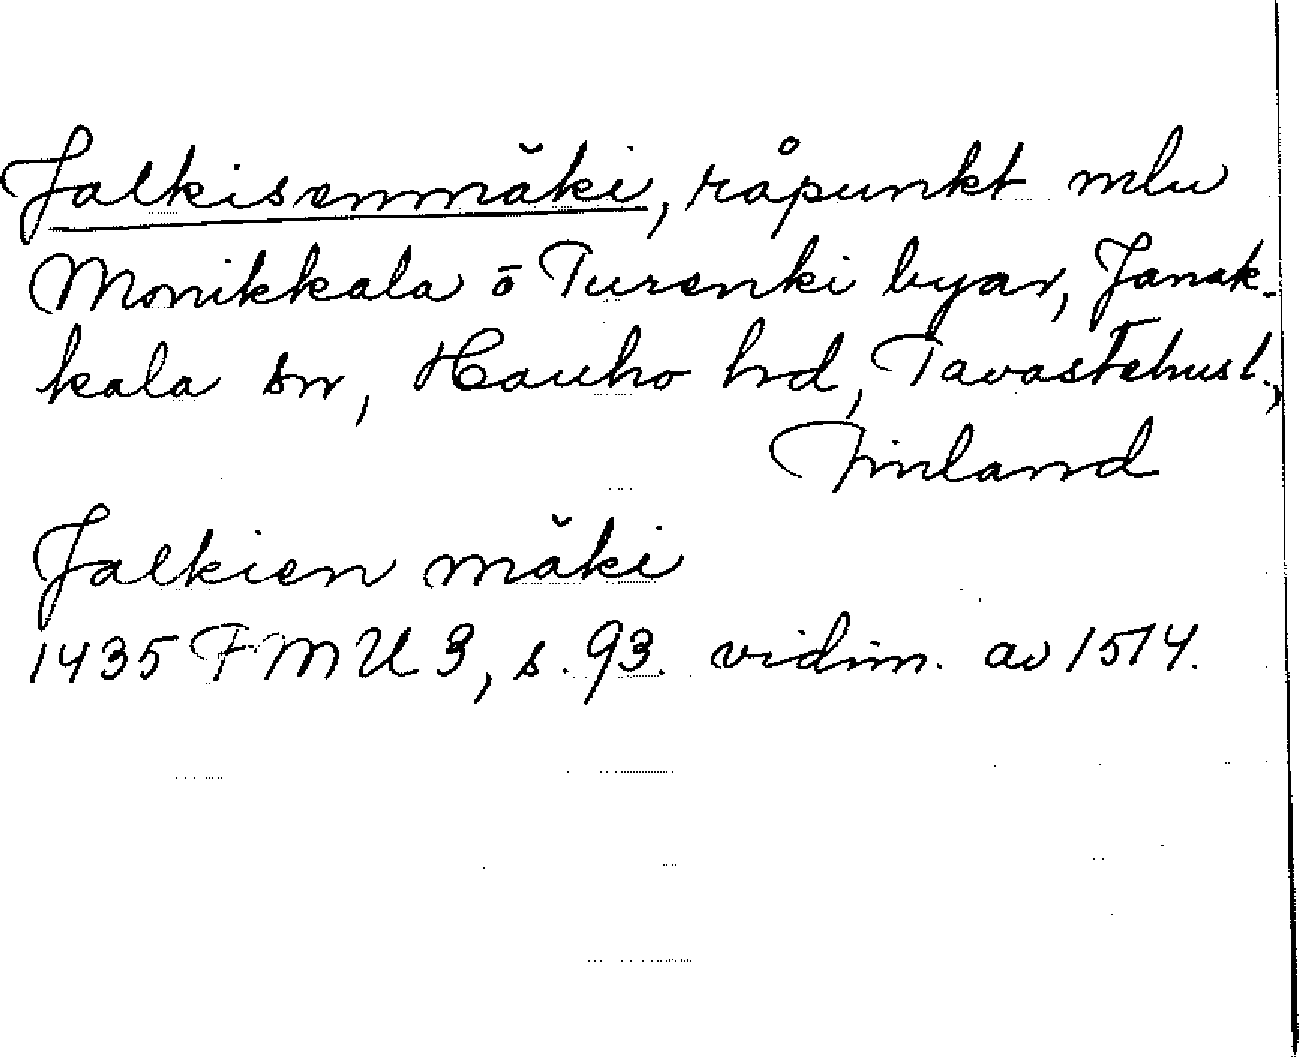 Jalkisenmäki, råpunkt mlu
Monikkala ō Turenki byar, Janak-
kala sn, Hauho hd, Tavastehusl.,
Finland
Jalkien mäki
1435 FMU 3, s. 93. vidim. av 1514.